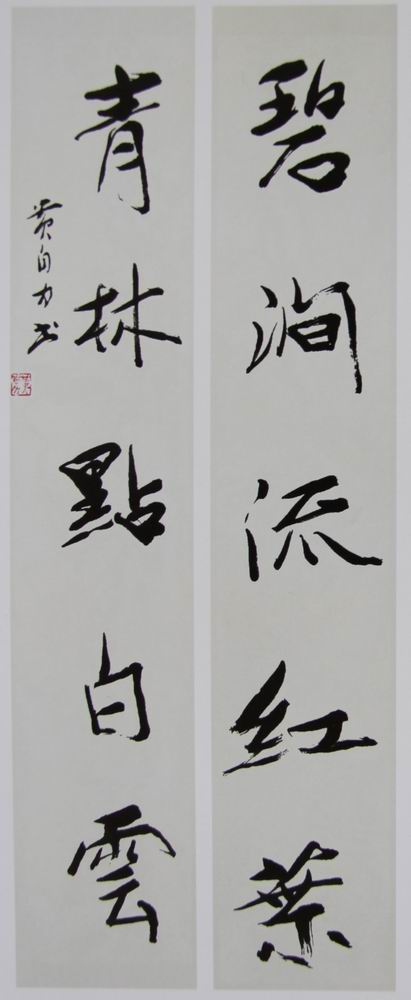 碧澗流紅葉
青林點白雲
黄自力书